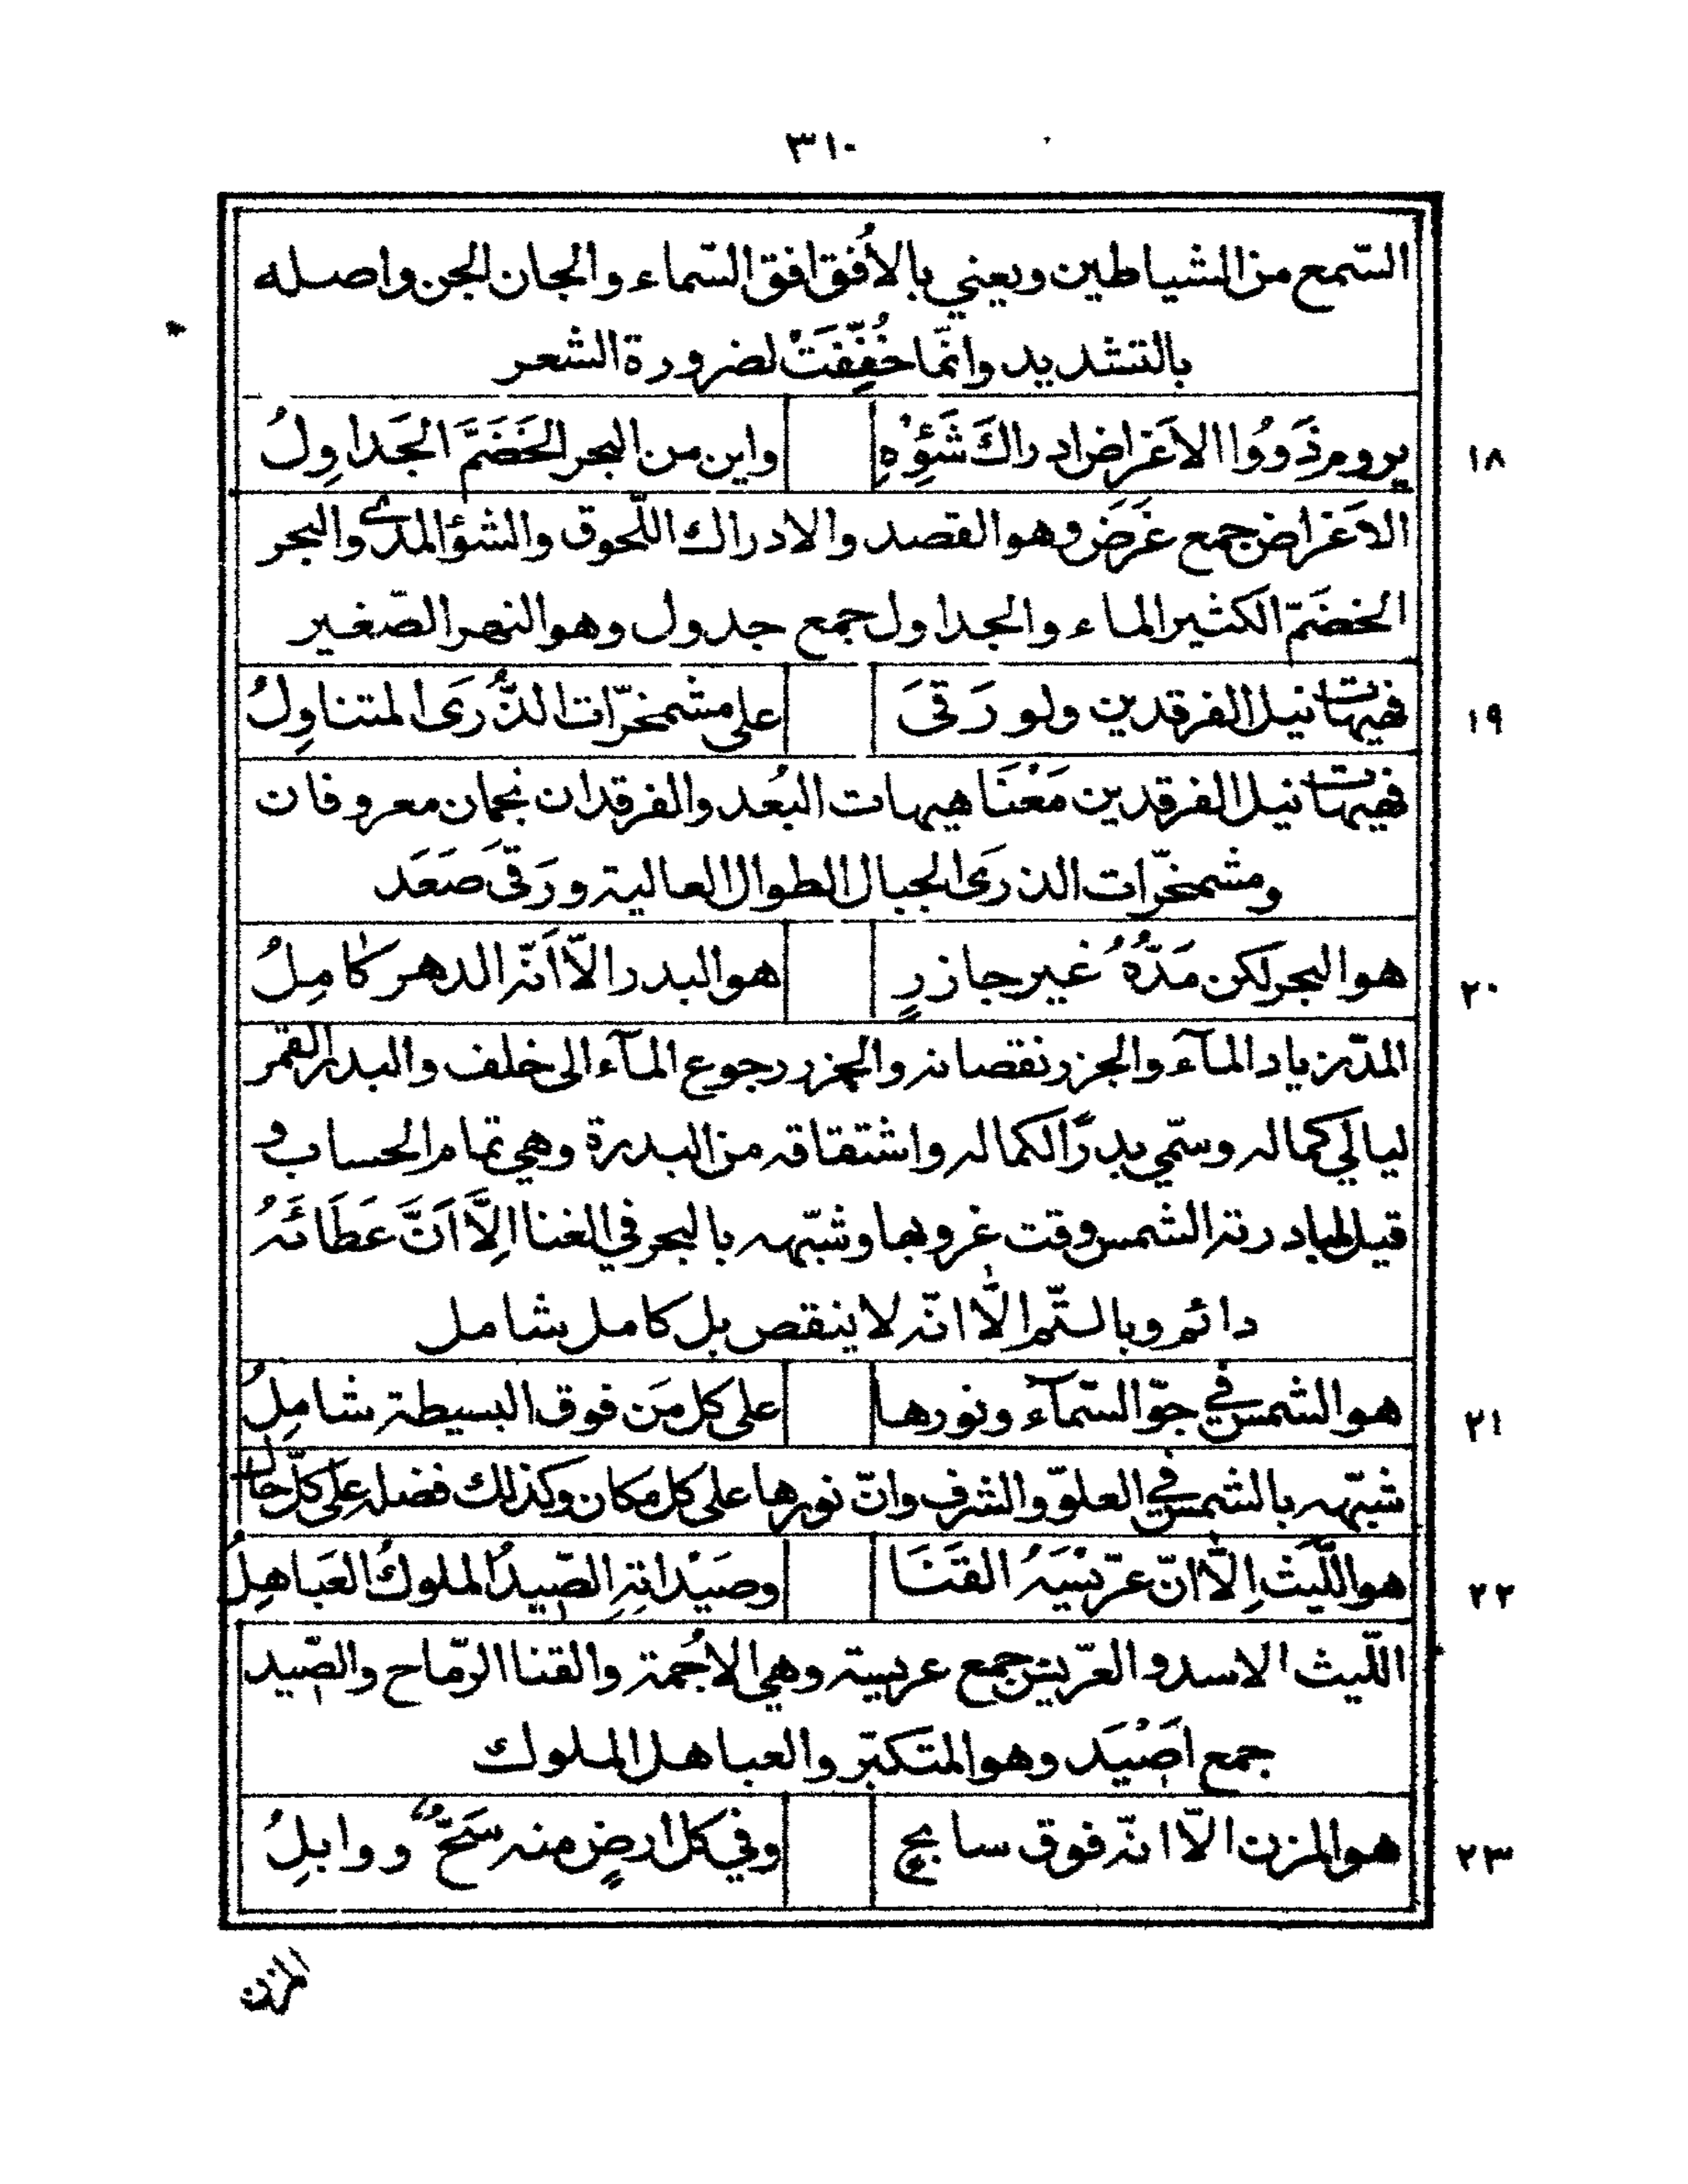 ٣١٠
السّمع من الشياطين ويعني بالأُفق افق السّماء والجان الجن واصله
بالتشديد وانّما خُفِّفَتْ لضرورة الشعر
١٨ يروم ذَووُا الاَغراض ادراكَ شَئِوْهِ واين من البحر الخَضَمَّ الجَداوِلُ
الاَغراض جمع غَرَض وهو القصد والادراك اللّحوق والشئو المدىٰ والبحر
الخضَمّ الكثير الماء والجداول جمع جدول وهو النهر الصّغير
١٩ فهيهات نيل الفرقدين ولو رَقىَ على مشمخرّات الذُّرَى المتناوِلُ
فهيهات نيل الفرقدين مَعْنَا هيهات البُعد والفرقدان نجمان معروفان
ومشمخرّات الذرىَ الجبال الطوال العالية ورَقّىَ صَعَد
٢٠ هو البحر لكن مَدّهُ غير جازرٍ هو البدر الاّ اَنّه الدهر كامِلُ
المدّ زياد المآء والجزر نقصانه والجزر رجوع المآء الى خلف والبدر القمر
ليالي كماله وسمّي بدرًا لكماله واشتقاقه من البدرة وهي تمام الحساب و
قيل لمبادرته الشمس وقت غروبها وشبّهه بالبحر في الغنا اِلاَّ اَنَّ عَطَائَهُ
دائم وبالتّم الاّ انّه لا ينقص بل كامل شامل
٢١ هو الشمس في جوّ السّمآء ونورها على كل مَن فوق البسيطة شامِلُ
شبّهه بالشمس في العلوّ والشرف وانّ نورها على كل مكان وكذلك فضله على كلّ حال
٢٢ هو اللَّيث اِلاّ انّ عرّيسَهُ القَنَا وصَيْدانهِ الصّيدُ الملوكُ العَباهِلُ
اللّيث الاسد والعرّيس جمع عريسة وهي الاجُمة والقنا الرّماح والصّيد
جمع اَصْيَد وهو المتكبّر والعباهل الملوك
٢٣ هو المزن الاّ انّه فوق سابحٍ وفي كل ارضٍ منه سَحٌّ ووابِلُ
المزن